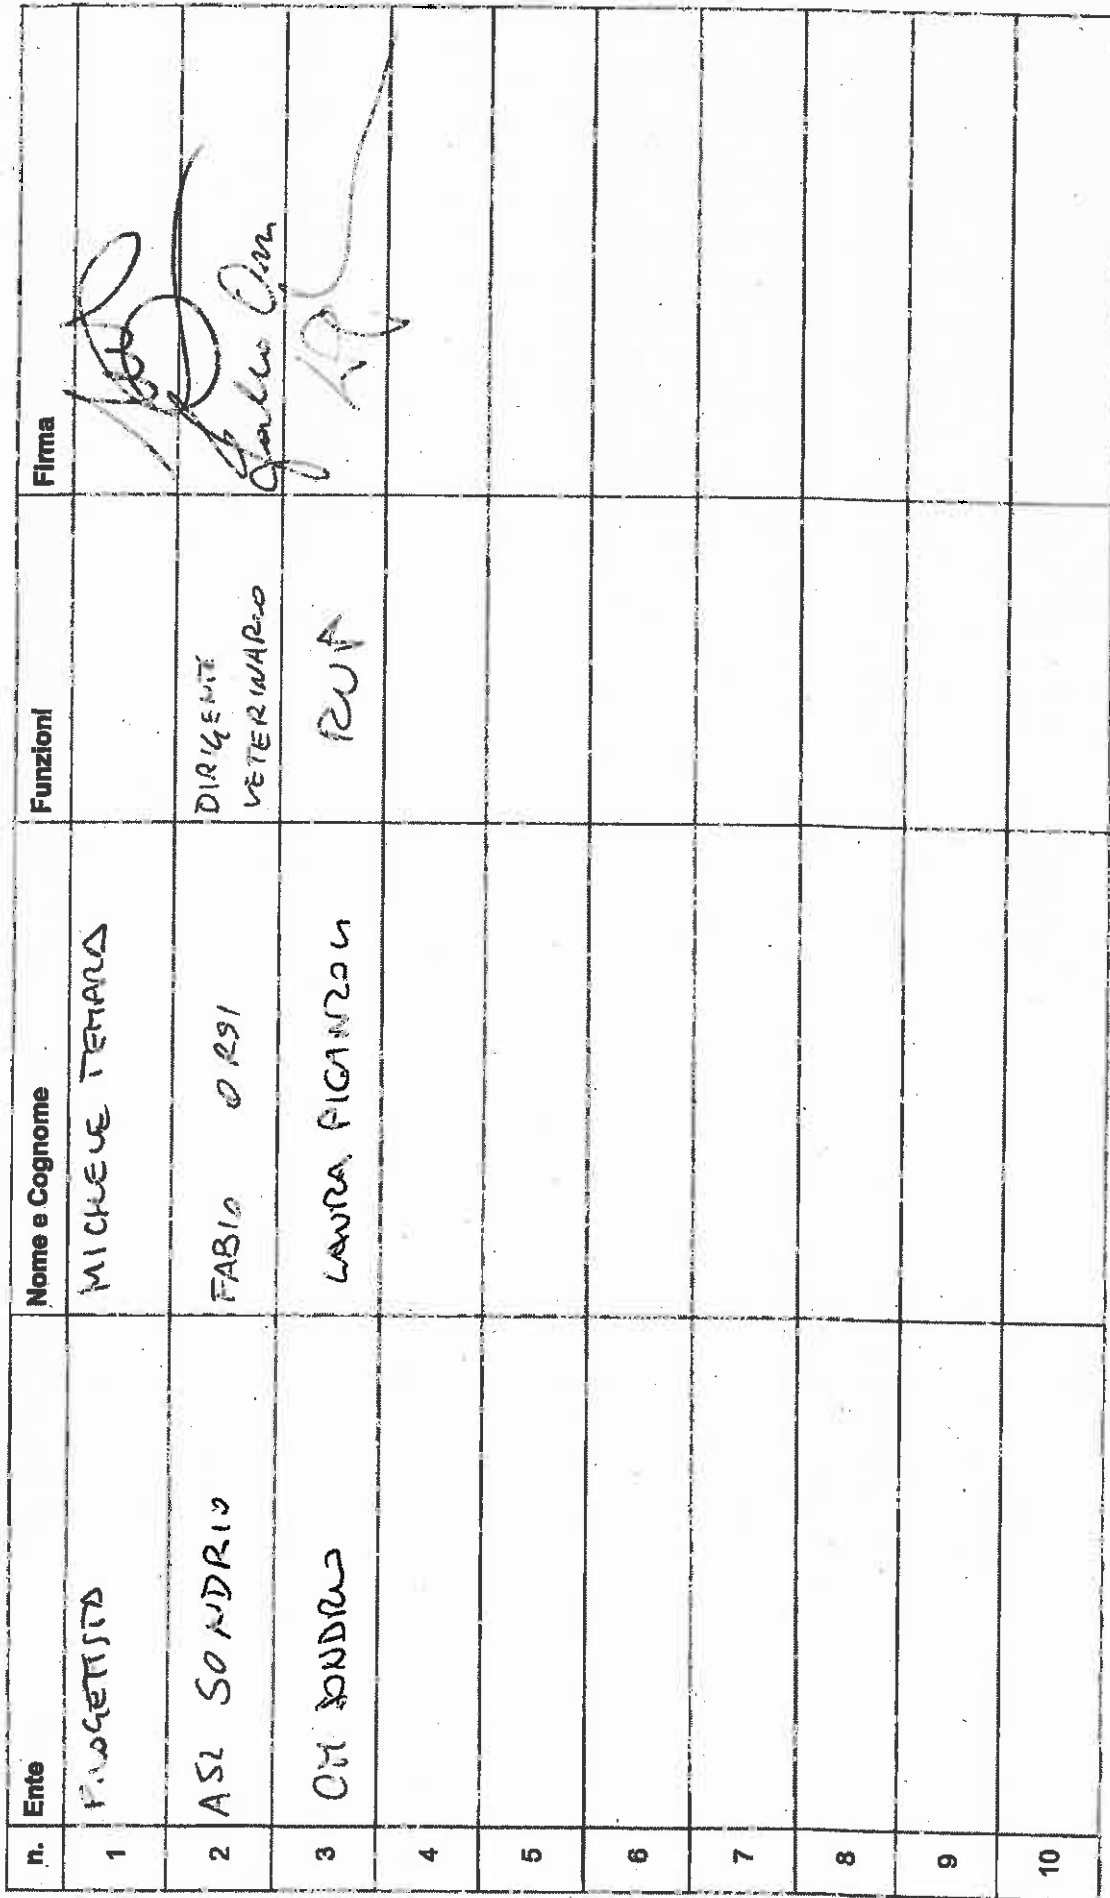 n. Ente Nome e Cognome Funzioni Firma
1 PROGETTISTA MICHELE TEMARA
2 ASL SONDRIO FABIO ORSI DIRIGENTE
VETERINARIO Fabio Orsi
3 CM SONDRIO LAURA PIGANZOLI RUP
4
5
6
7
8
9
10